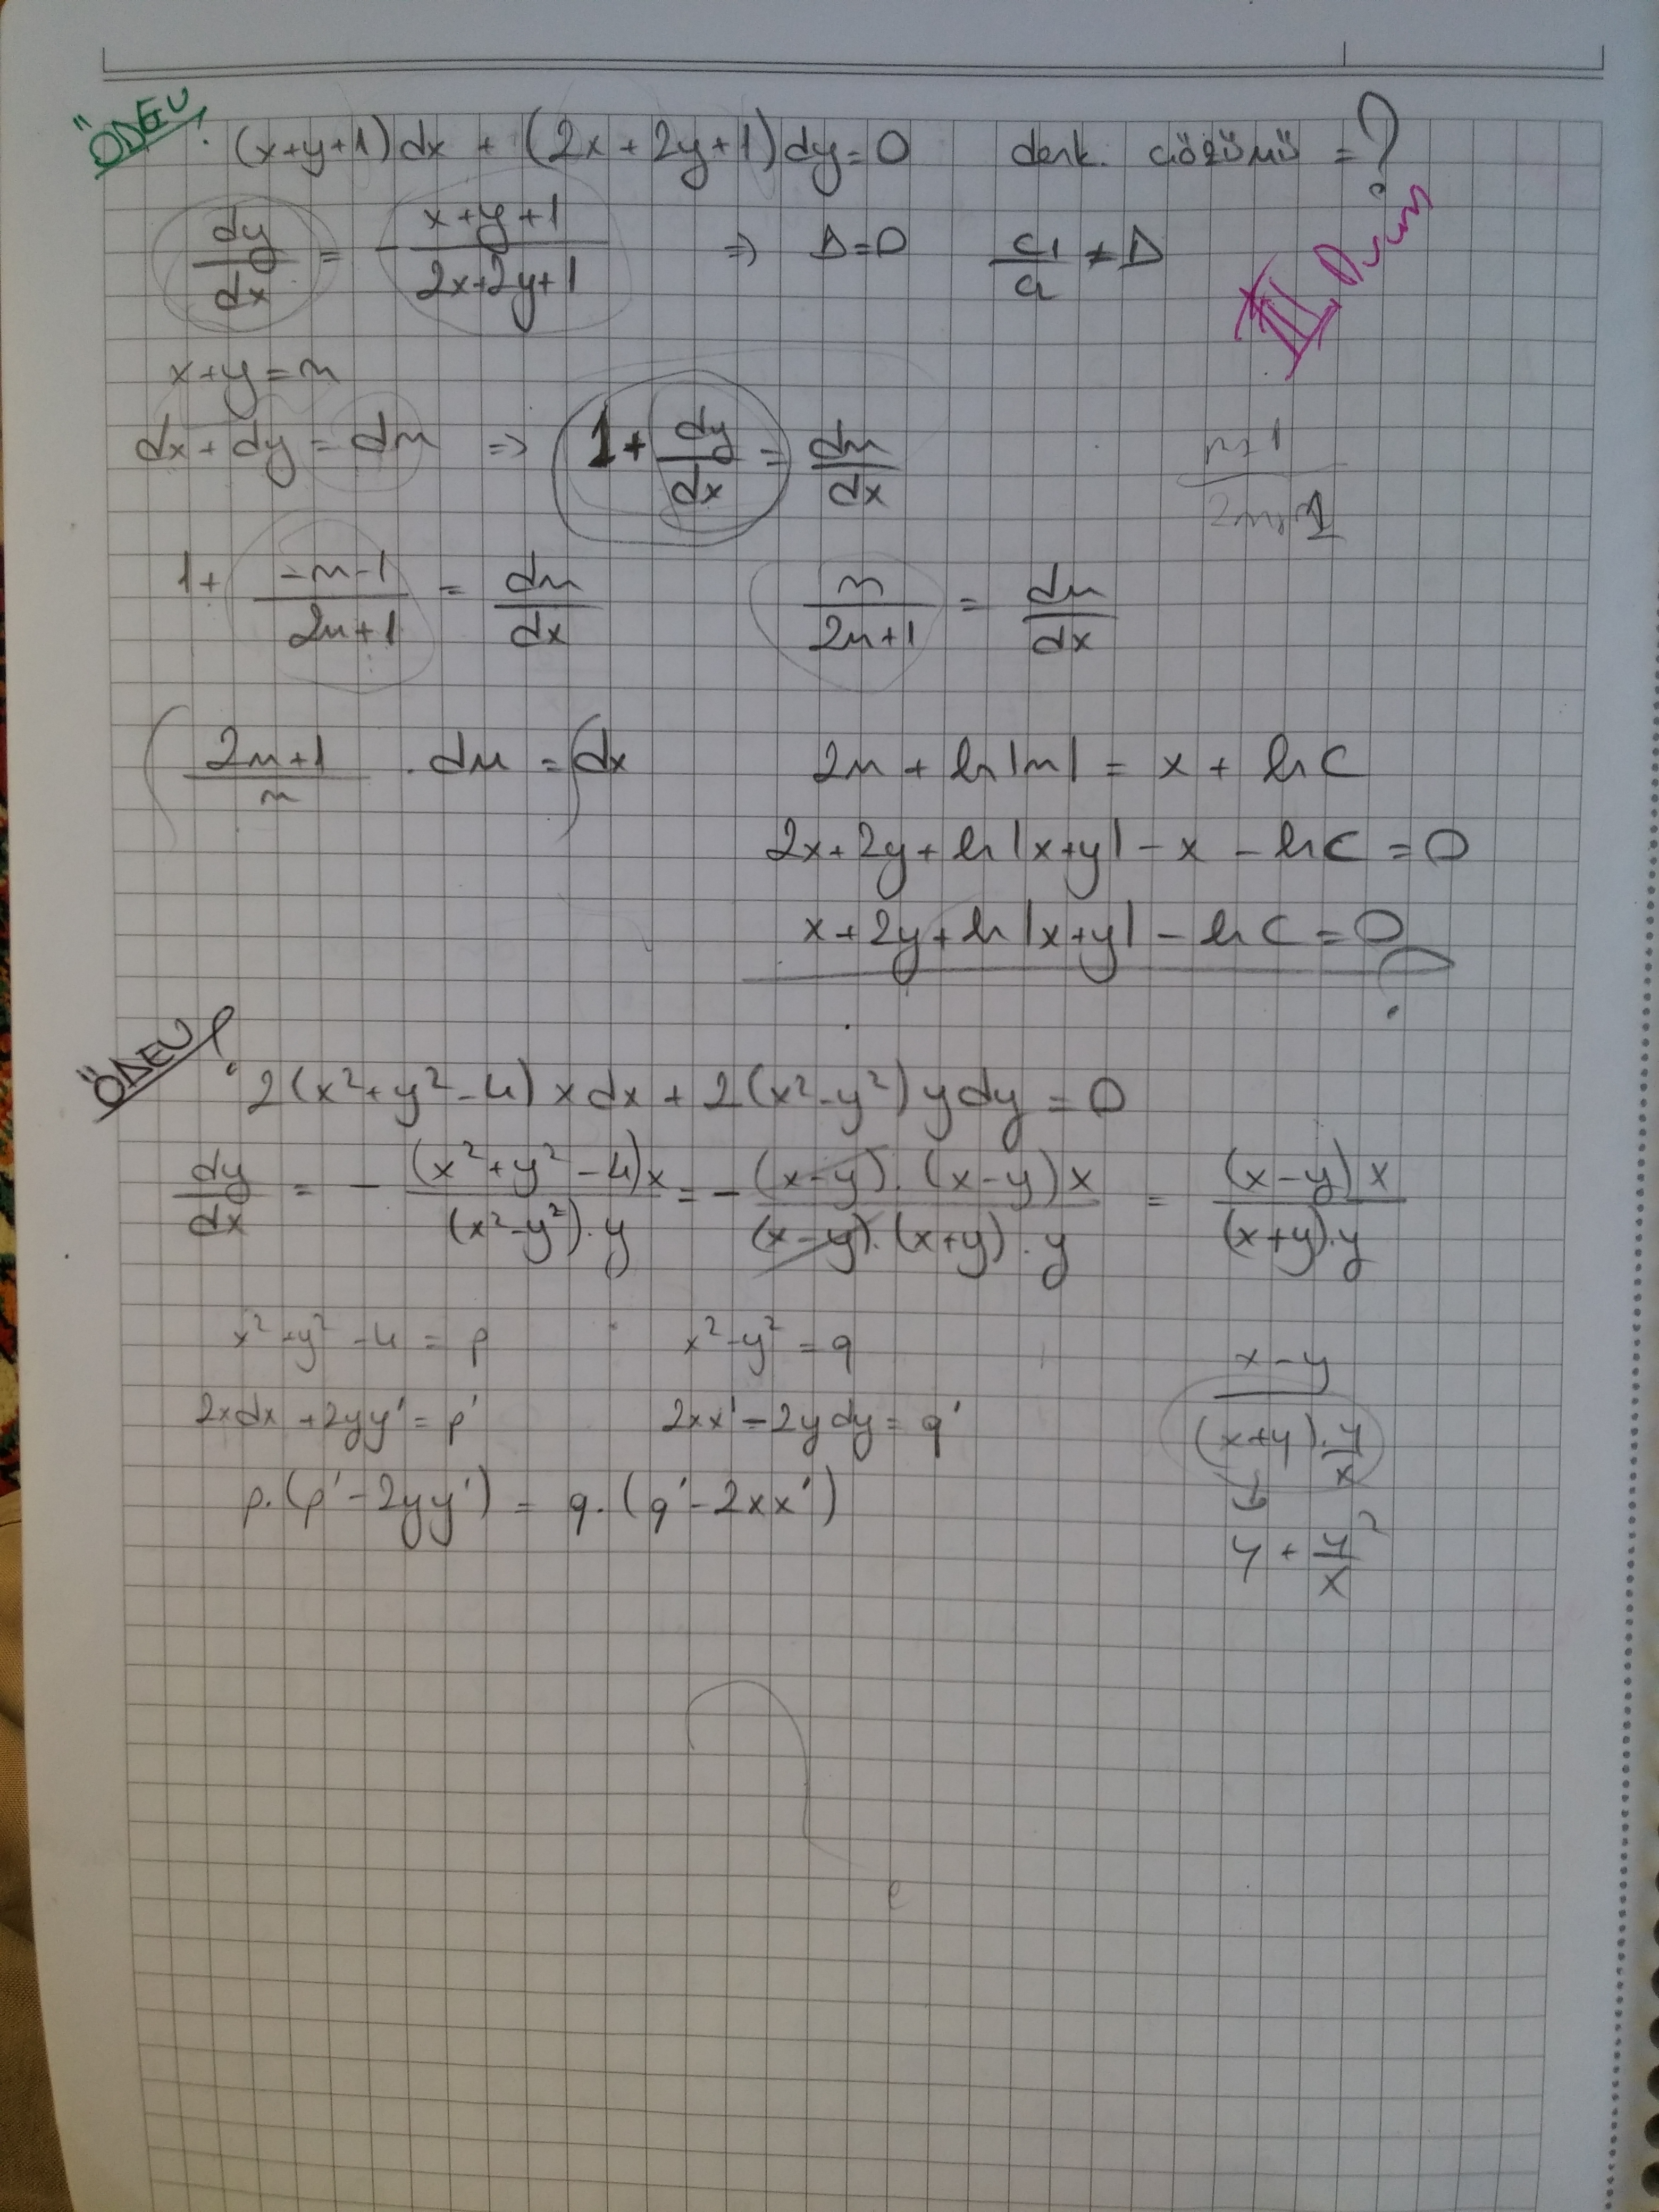 ÖDEV: (x+y+1)dx + (2x+2y+1)dy=0 denk. çözümü =?
dy/dx = - x+y+1/2x+2y+1 ⇒ Δ=0 c1/a ≠ Δ
x+y=u
dx+dy=du ⇒ 1+ dy/dx = du/dx
u+1/2u+1
1+ -u-1/2u+1 = du/dx u/2u+1 = du/dx
∫ 2u+1/u . du = ∫dx 2u + ln|u| = x + ln C
2x+2y+ln|x+y| - x - ln C = 0
x+2y+ln|x+y| - ln C = 0
?
ÖDEV? 2(x²+y²-4) x dx + 2(x²-y²) y dy = 0
dy/dx = - (x²+y²-4)x/(x²-y²).y = - (x-y).(x-y)x/(x-y).(x+y).y = (x-y)x/(x+y).y
x²+y²-4 = p x²-y² = q
2xdx+2yy'=p' 2xx'-2ydy=q'
p.(p'-2yy') = q.(q'-2xx')
x-y/(x+y).y/x
y + y²/x